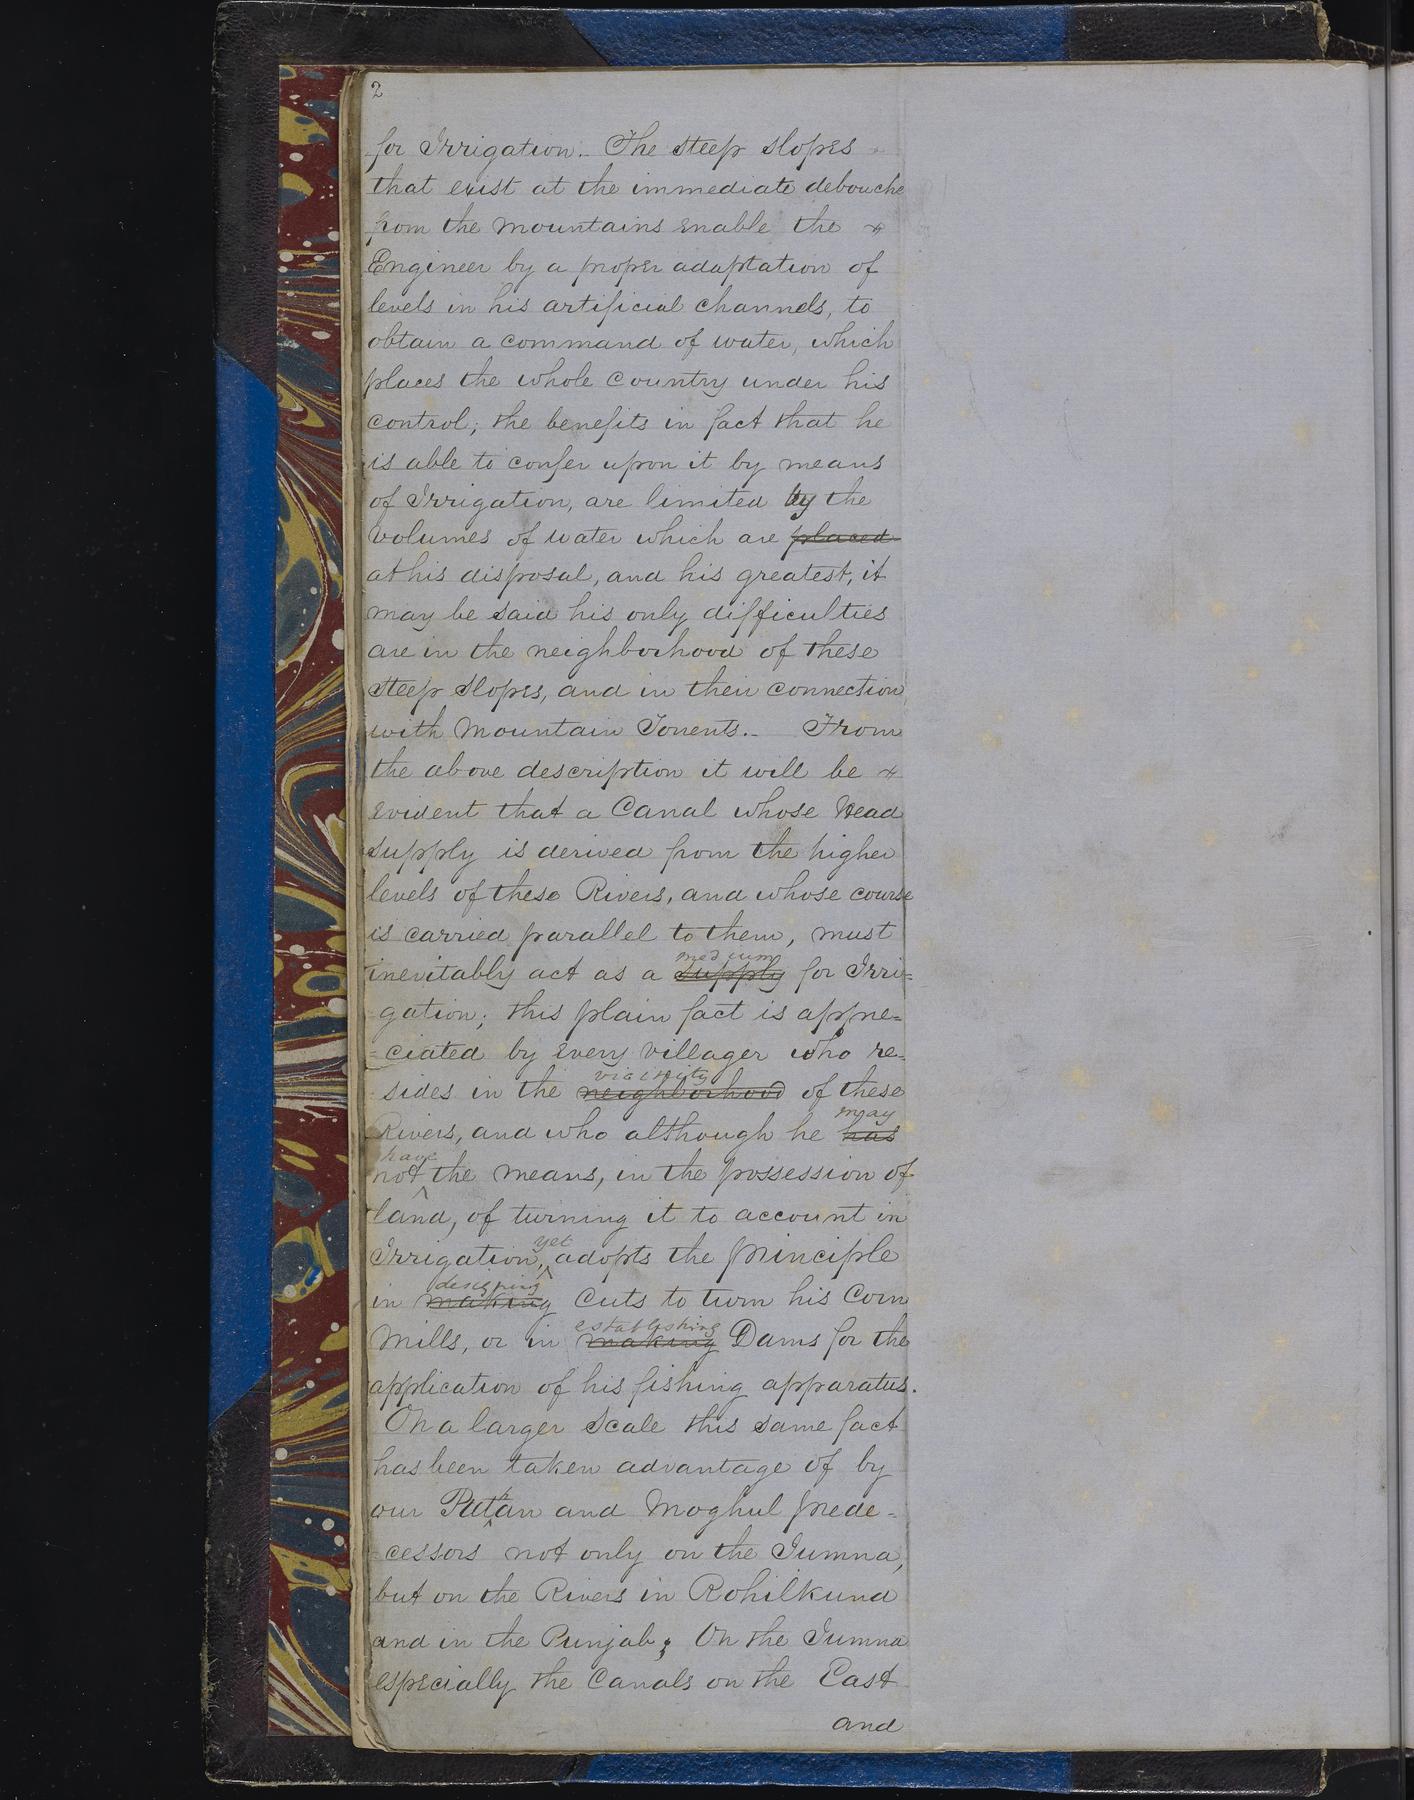 2
for Irrigation. The steep slopes
that exist at the immediate debouche
from the mountains enable the
Engineer by a proper adaptation of
levels in his artificial channels, to
obtain a command of water, which
places the whole Country under his
control; the benefits in fact that he
is able to confer upon it by means
of Irrigation, are limited by the
volumes of water which are placed
at his disposal, and his greatest, it
may be said his only difficulties
are in the neighborhood of these
steep slopes, and in their connection
with Mountain Torrents. From
the above description it will be
evident that a Canal whose Head
supply is derived from the higher
levels of these Rivers, and whose course
is carried parallel to them, must
medium
inevitably act as a supply for Irri=
gation; this plain fact is appre=
=ciated by every villager who re-
vicinity
sides in the neighborhood of these
may
Rivers, and who although he has
have
not the means, in the possession of
land, of turning it to account in
yet
Irrigation, adopts the principle
designing
in making Cuts to turn his Corn
establishing
Mills, or in making Dams for the
application of his fishing apparatus.
On a larger scale this same fact
has been taken advantage of by
h
our Patan and Moghul prede-
-cessors not only on the Jumna,
but on the Rivers in Rohilkund
and in the Punjab; On the Jumna
especially the Canals on the East
and